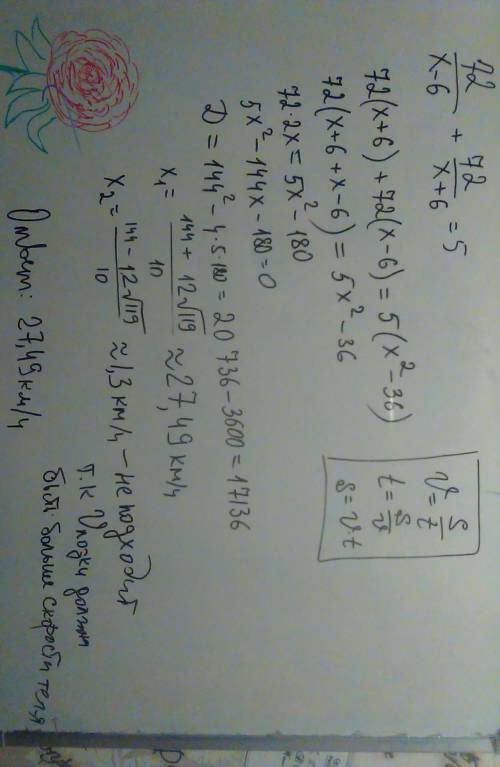 72/(x-6) + 72/(x+6) = 5
72(x+6)+72(x-6) = 5(x²-36)
72(x+6+x-6) = 5x²-36
72·2x = 5x²-180
5x²-144x-180=0
D = 144²-4·5·180 = 20736-3600 = 17136
x₁ = (144+12√119)/10 ≈ 27,49 км/ч
x₂ = (144-12√119)/10 ≈ 1,3 км/ч — не подходит
т.к V лодки должна
быть больше скорости теч
Ответ: 27,49 км/ч
V = S/t
t = S/V
S = V·t